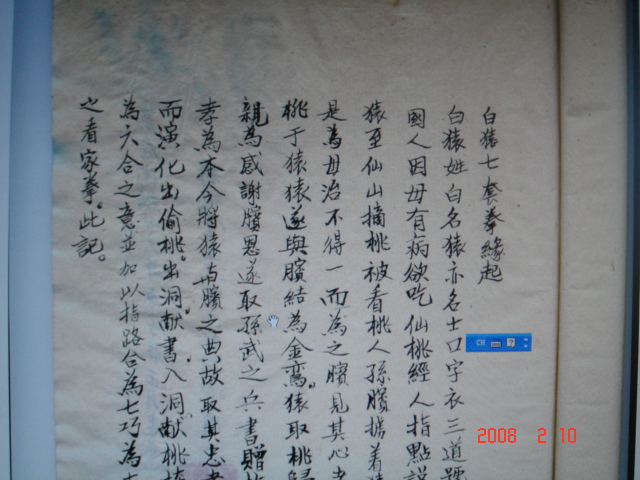 白猿七套拳緣起
白猿姓白名猿亦名士口字衣三道號
國人因母有病欲吃仙桃經人指點說
猿至仙山摘桃被看桃人孫臏擒着
是為母治不得一而為之臏見其心
桃于猿猿遂與臏結為金鸞。猿取桃歸
親為感謝臏恩遂取孫武之兵書贈
孝為本今將猿與臏之典故取其忠孝
而演化出偷桃。出洞。献書。入洞献桃
為六合之意並加以指路合為七巧為
之看家拳。此記。
CH
2008 2 10